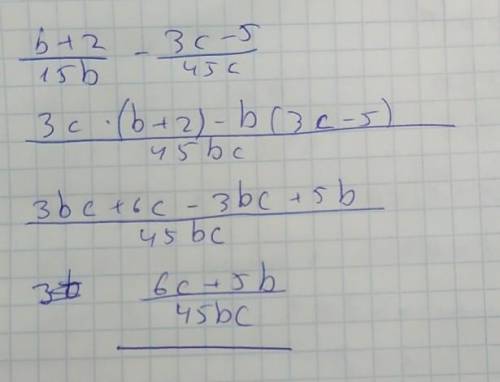 (b+2)/(15b) - (3c-5)/(45c)
(3c·(b+2)-b(3c-5))/(45bc)
(3bc+6c-3bc+5b)/(45bc)
(6c+5b)/(45bc)